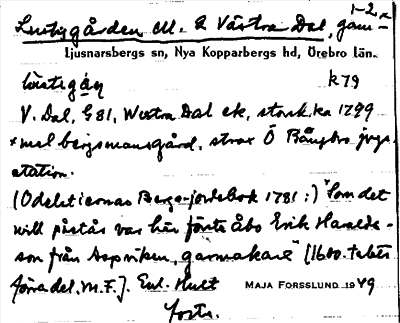 1-2
Lustigården M. & Västra Dal, gam-
Ljusnarsbergs sn, Nya Kopparbergs hd, Örebro län.
k 79
V. Dal, G 81, Westra Dal ek, stork.ka 1799
bergsmansgård, strax Ö Bångbro jvgs-
station.
(Odelstiernas Bergs-jordebok 1781:) "Som det
will påstås var här förste åbo Erik Haralds-
son från Aspviken, garmakare" (1600-talets
förra del. M.F.). Enl. Hult
MAJA FORSSLUND 1949